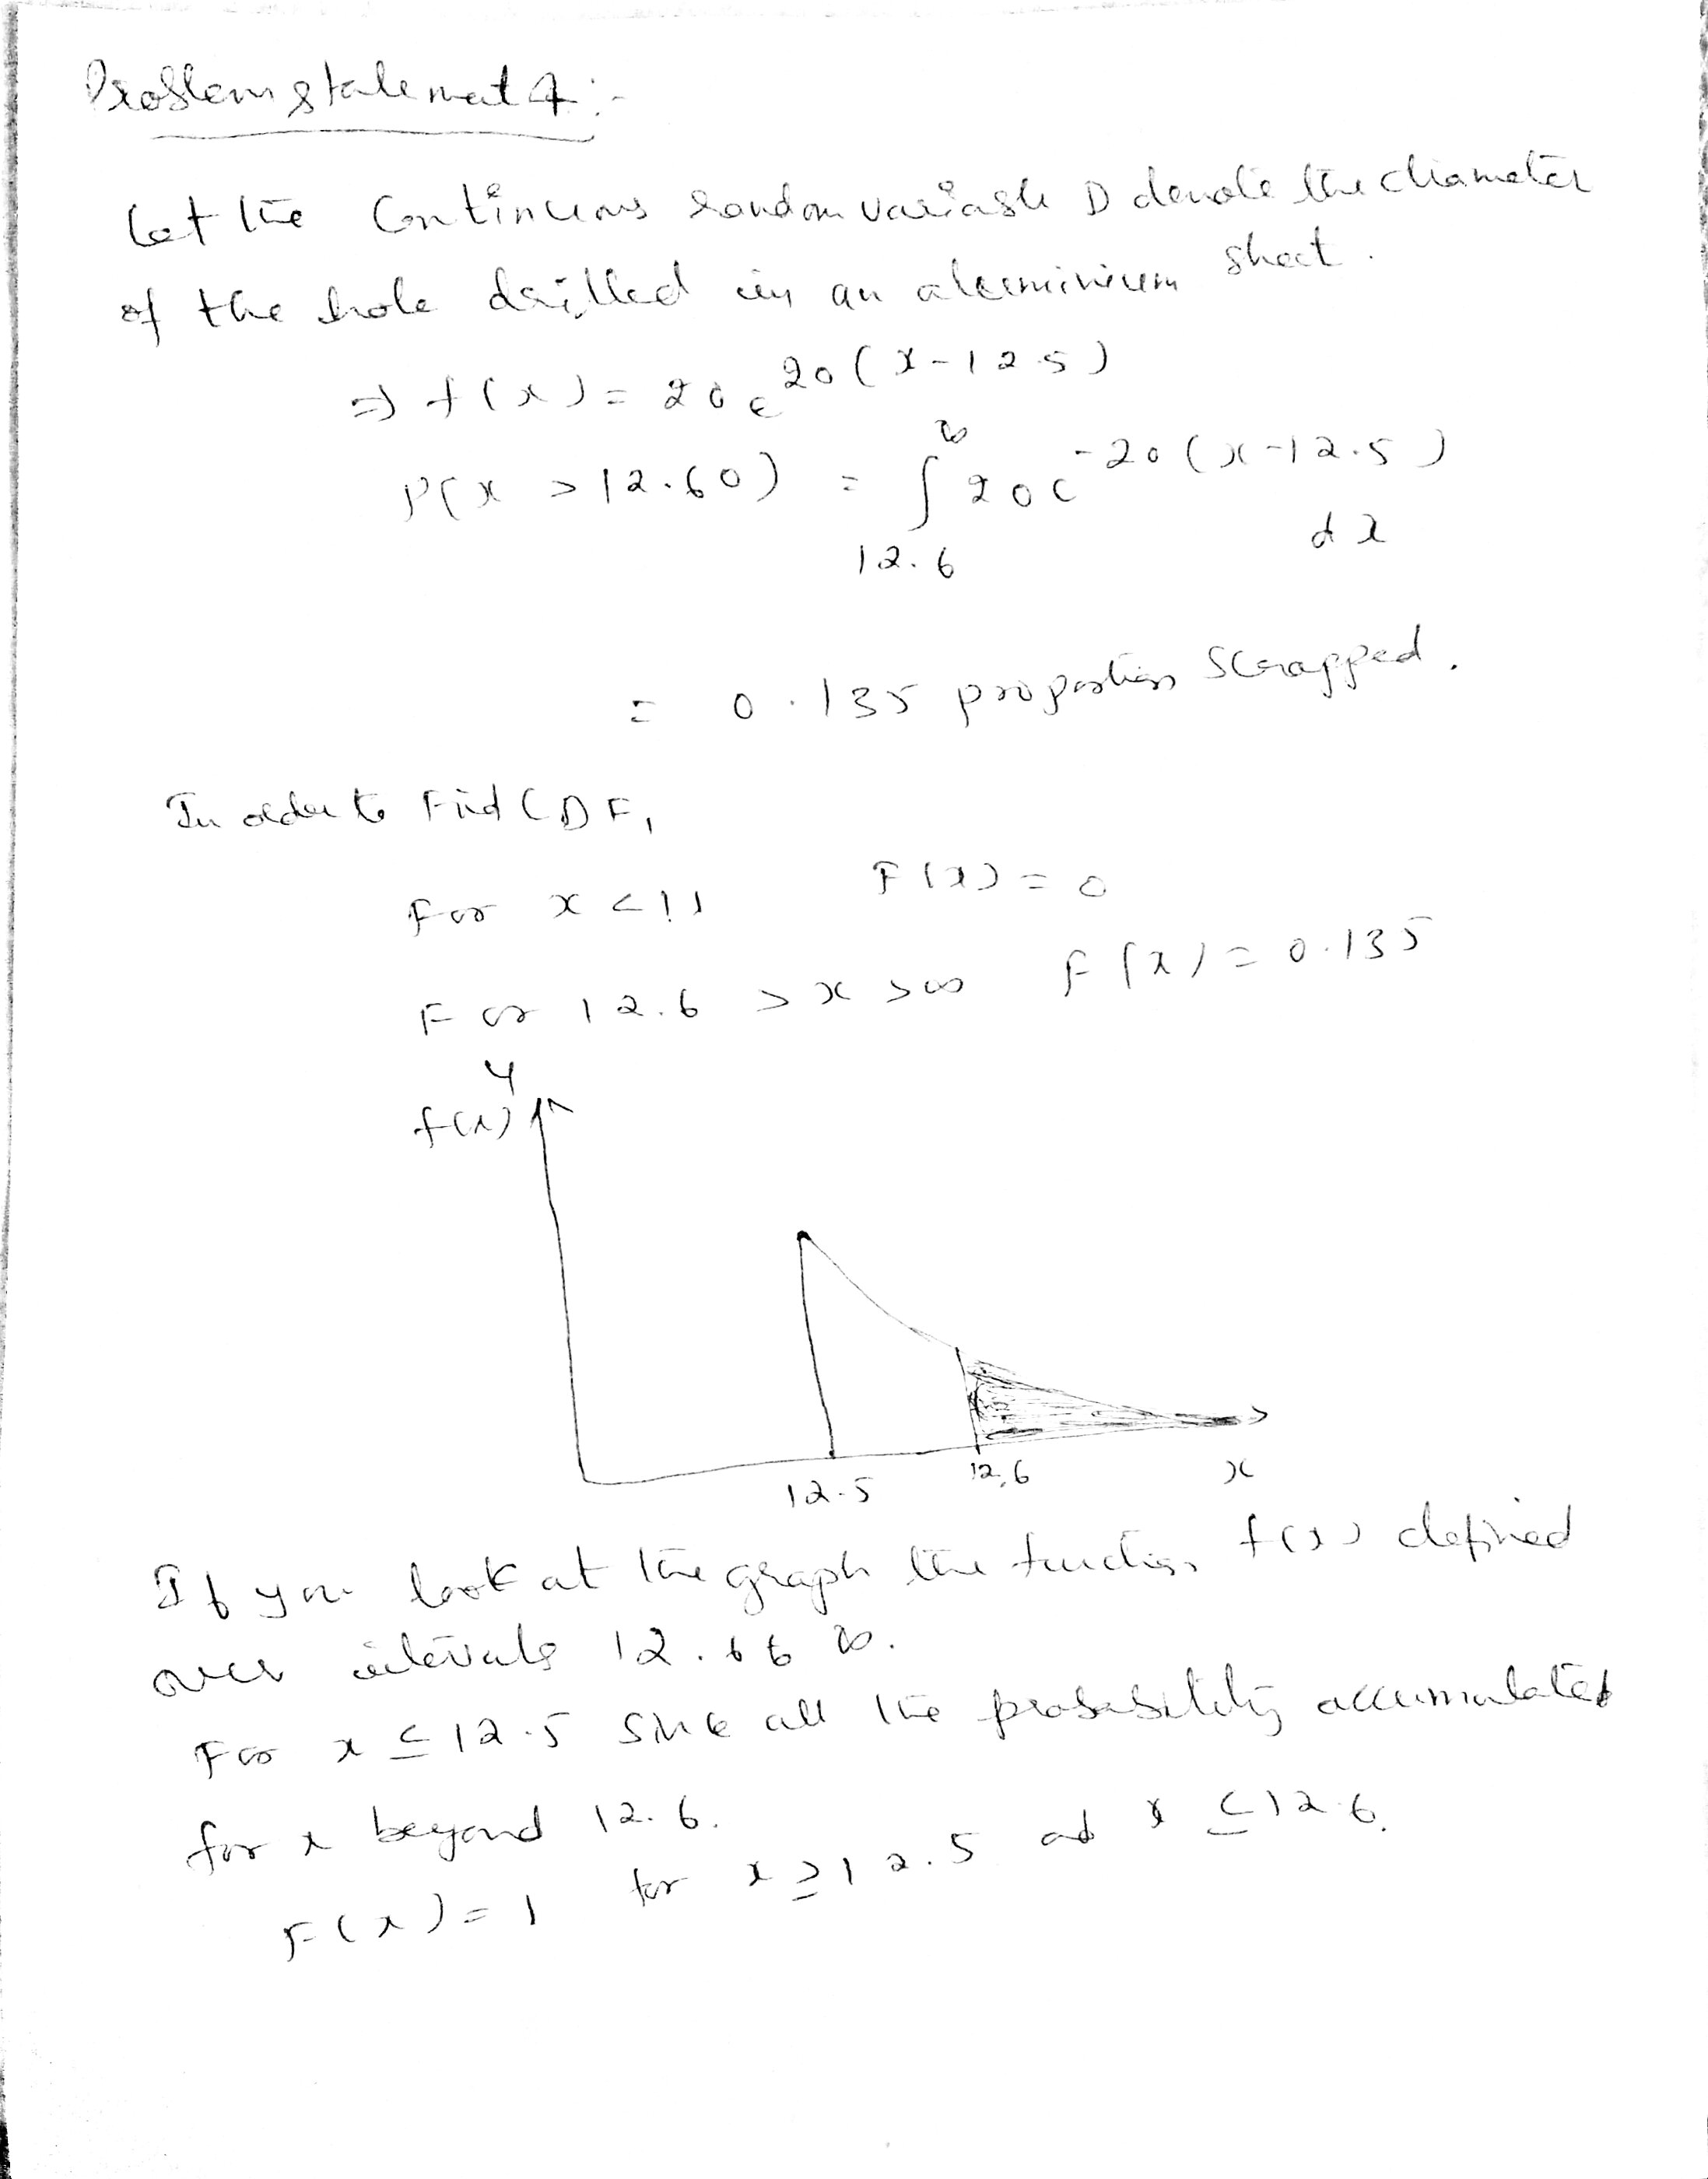 Problem statement 4:-
Let the Continuous random variable D denote the diameter
of the hole drilled in an aluminium sheet.
⇒ f(x) = 20e^20(x-12.5)
P(x > 12.60) = ∫_12.6^∞ 20e^-20(x-12.5) dx
= 0.135 proportion Scrapped.
In order to Find CDF,
For x < 11 F(x) = 0
For 12.6 > x > ∞ F(x) = 0.135
y
f(x)
12.5 12.6 x
If you look at the graph the function f(x) defined
over intervals 12.6 to ∞.
For x ≤ 12.5 since all the probability accumulated
for x beyond 12.6.
F(x) = 1 for x ≥ 12.5 and x ≤ 12.6.